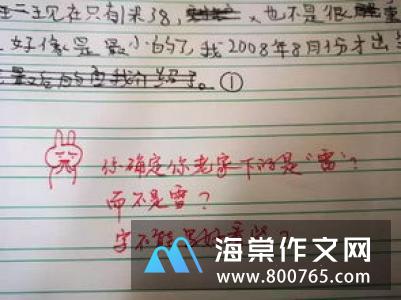 现在只有1米38，也不是很重
好像是最小的了，我2008年8月份才出
。①
你确定你老家下的是“雷”？
而不是雪？
字不能
海棠作文网
www.800765.com